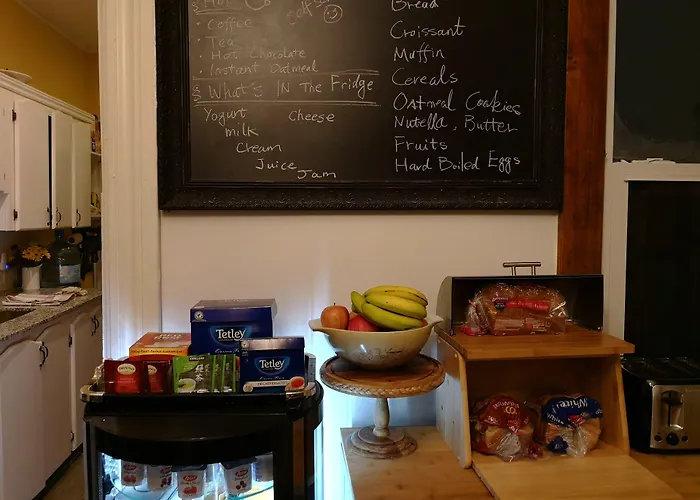 Hot
· Coffee
· Tea
· Hot Chocolate
· Instant Oatmeal
What's In The Fridge
Yogurt
Cheese
milk
Cream
Juice
Jam
Bread
Croissant
Muffin
Cereals
Oatmeal Cookies
Nutella, Butter
Fruits
Hard Boiled Eggs
Tetley
Tetley